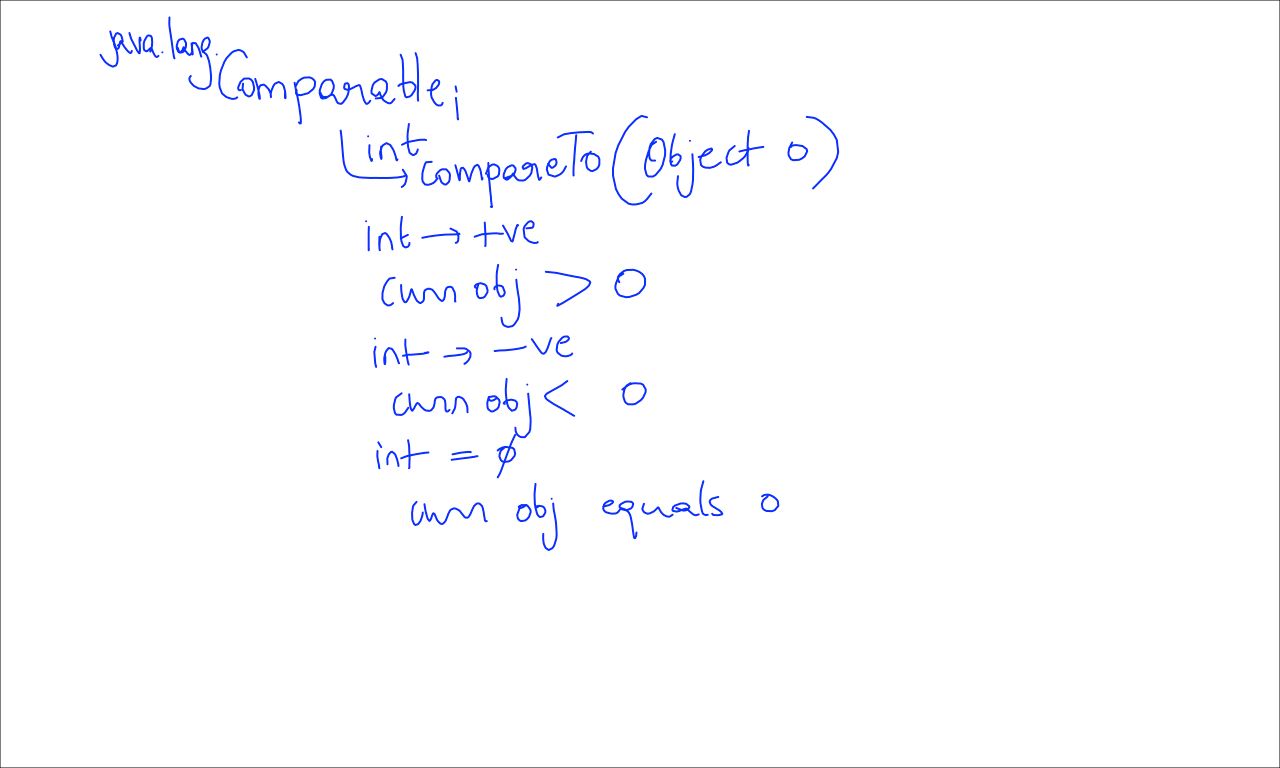 java.lang.
Comparable;
int
compareTo(Object o)
int → +ve
curr obj > o
int → -ve
curr obj < o
int = ø
curr obj equals o